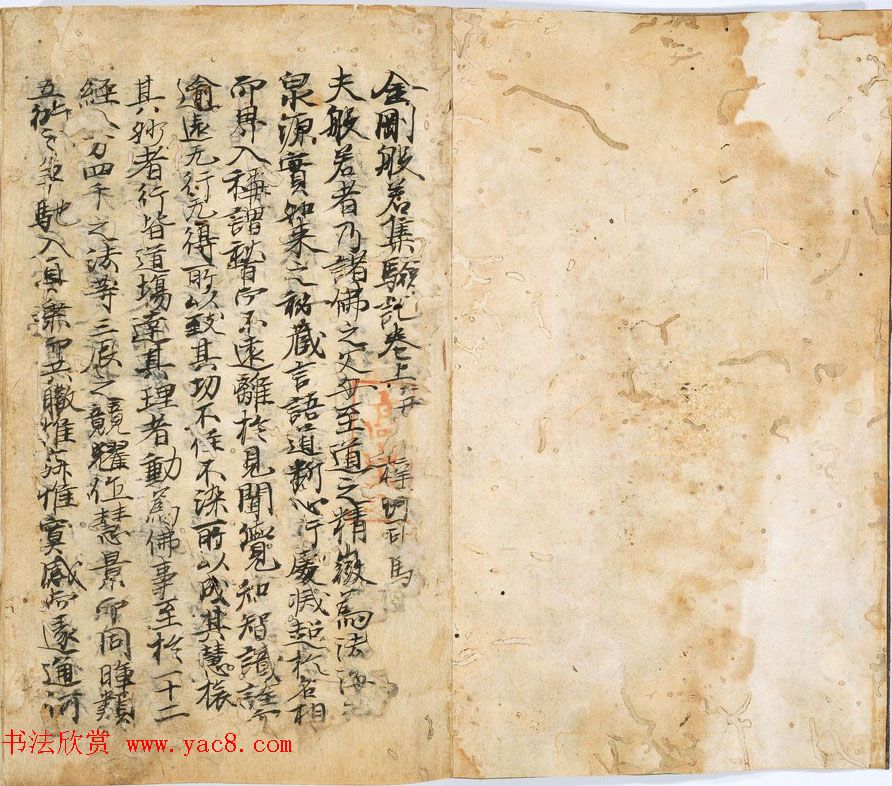 金剛般若集驗記卷上并 梓州司馬
夫般若者乃諸佛之父母至道之精微為法海之
泉源實如來之祕藏言語道斷心行處滅超於名相
而界入稱謂暫而不遠離於見聞覺知智識詮
逾遠无行无得所以致其功不住不染所以成其慧振
其妙者行皆道場達其理者動為佛事至於十二
經八万四千之法等三辰之競耀但慧景而同暉類
五衍之爭馳入真乘而共轍惟寂惟寞感而遂通河
书法欣赏 www.yac8.com